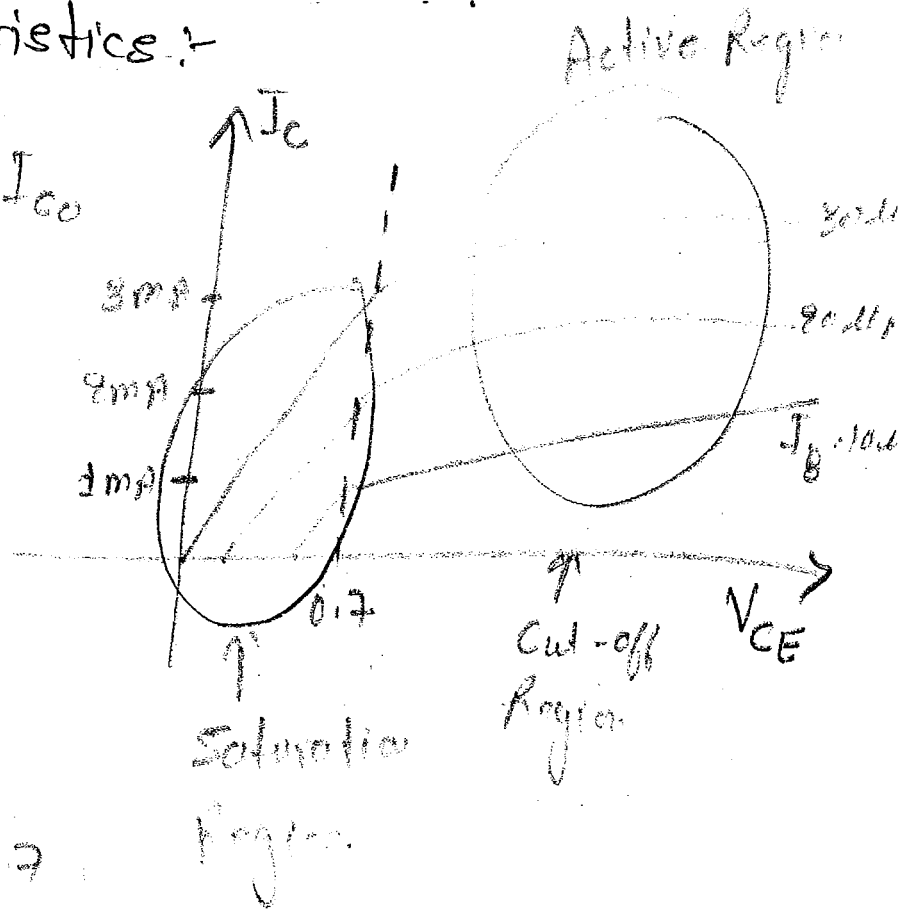 ristics :-
Active Region
I_C
I_CO
30 µA
3mA
20 µA
2mA
I_B = 10 µA
1mA
0.7
V_CE
Cut-off
Region
Saturation
Region.
7